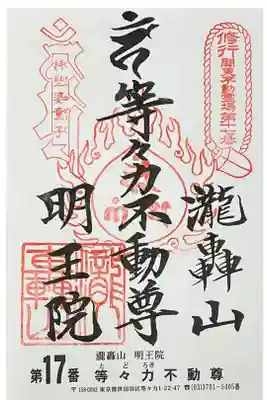 修行 関東不動霊場 第十七番
等々力不動尊
瀧轟山
明王院
瀧轟山 明王院
とどろき
第17番 等々力不動尊
〒158-0082 東京都世田谷区等々力1-22-47 ☎(03)3701-5405番